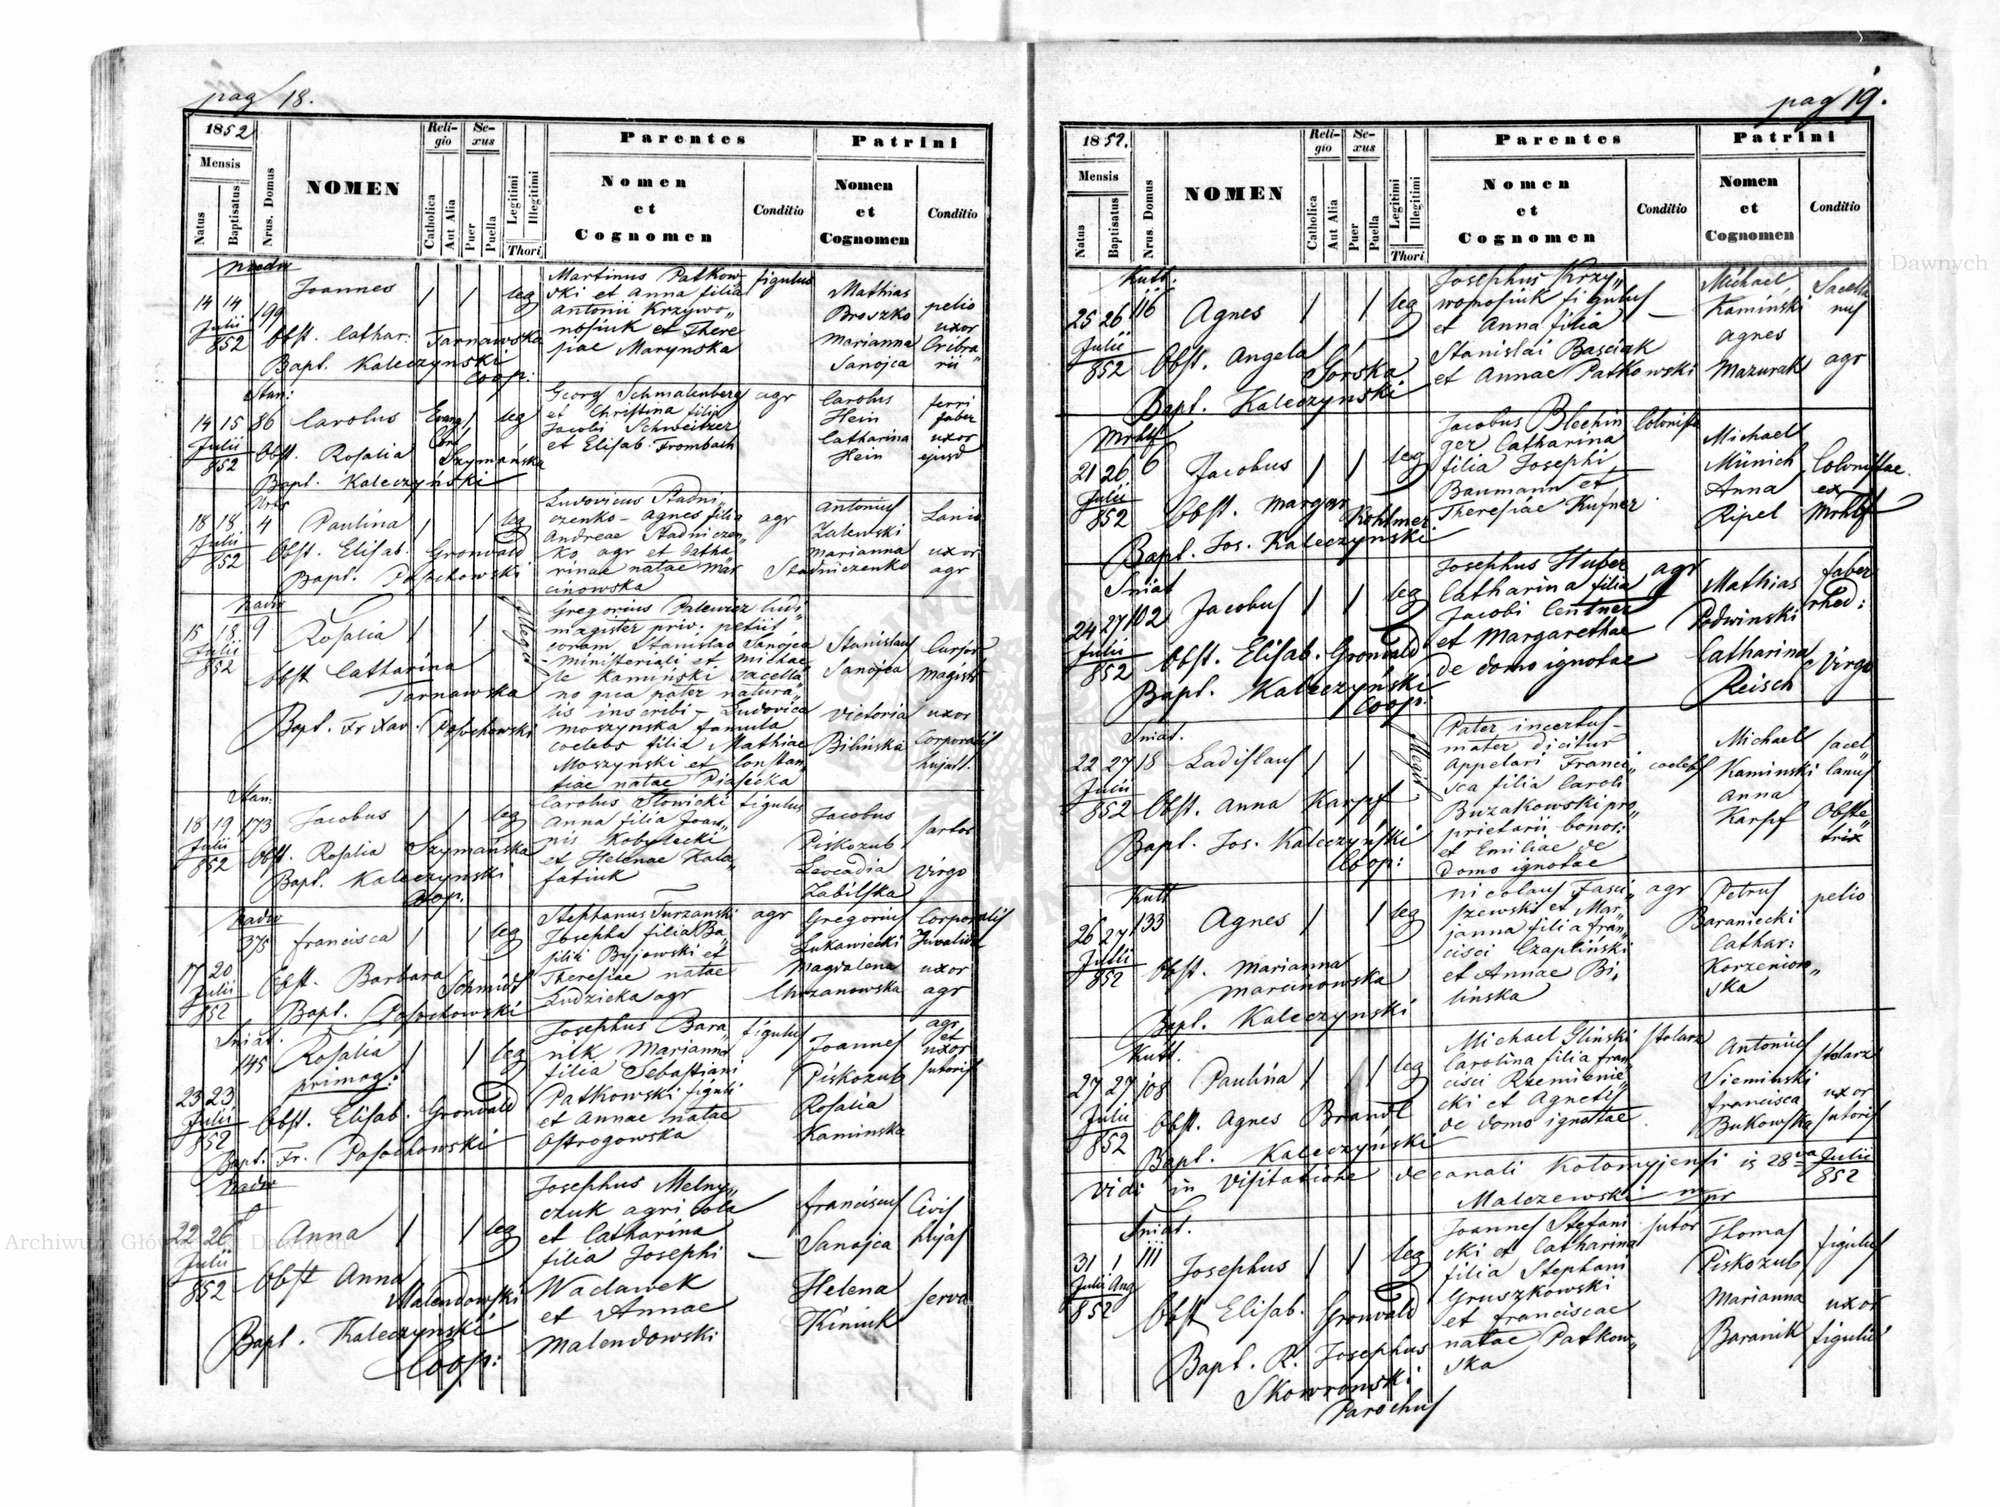 pag 18.
1852
Mensis
Natus
Baptisatus
Nrus. Domus
NOMEN
Reli-
gio
Catholica
Aut Alia
Se-
xus
Puer
Puella
Legitimi
Illegitimi
Thori
Parentes
Nomen
et
Cognomen
Conditio
Patrini
Nomen
et
Cognomen
Conditio
14 14 199 Joannes / / leg
Julii
852
Obst. Cathar: Tarnawska
Bapt. Kaleczynski
Coop:
Martinus Patkow-
ski et Anna filia
Antonii Krzywo„
nosiuk et There
siae Marynska
figulus
Mathias
Broszko
Marianna
Sanojca
pelio
uxor
Cribra„
rii
Stan:
14 15 86 Carolus Evang / leg
Julii
852
Obst. Rosalia Szymańska
Bapt. Kaleczyński
Georg Schmalenberg
et Christina filia
Jacobi Schweitzer
et Elisab. Frombach
agr
Carolus
Hein
Catharina
Hein
ferri
faber
uxor
ejusd
18 18 4 Paulina / / leg
Julii
852
Obst. Elisab. Gronvald
Bapt. Pasochowski
Ludovicus Stadni„
czenko - Agnes filia
Andreae Stadniczen„
ko agr et Catha„
rinae natae Mar
cinowska
agr
Antonius
Zalewski
Marianna
Stadniczenko
Lanio
uxor
agr
Nadw
15 18 9 Rosalia / / Illegit
Julii
852
Obst Catharina
Tarnawska
Bapt. Fr Xav. Pasochowski
Gregorius Palewicz ludi„
magister priv. petiit
coram Stanislao Sanojca
- ministeriali et Michae„
le Kamiński Sacella„
no qua pater natura„
lis inscribi - Ludovica
Moszynska famula
coelebs filia Mathiae
Moszyński et Constan„
tiae natae Piasecka
Stanislaus
Sanojca
Victoria
Bilińska
magistr
uxor
Corporalis
hujat.
Stan:
18 19 173 Jacobus / / leg
Julii
852
Obst. Rosalia Szymańska
Bapt. Kaleczynski
Coop.
Carolus Słowicki
Anna filia Joan„
nis Kobylecki
et Helenae Kala„
fatiuk
figulus
Jacobus
Piskozub
Leocadia
Zabilska
sartor
virgo
Nadw
17 20 375 francisca / / leg
Julii
852
Obst. Barbara Schmidt
Bapt. Pasochowski
Stephanus Turzanski
Josepha filia Ba„
silii Byjowski et
Theresiae natae
Ludzicka agr
agr
Gregorius
Lukawiecki
Magdalena
Chrzanowska
Corporalis
Invalid
uxor
agr
Sniat.
23 23 145 Rosalia / / leg
primog:
Julii
852
Obst. Elisab. Gronvald
Bapt. Fr. Pasochowski
Josephus Bara„
nik Marianna
filia Sebastiani
Patkowski figuli
et Annae natae
Ostrogowska
figulus
Joannes
Piskozub
Rosalia
Kaminska
agr
et
uxor
sutoris
Nadw
22 26 Anna / / leg
Julii
852
Obst Anna
Malendowski
Bapt. Kaleczynski
Coop:
Josephus Melny„
czuk agricola
et Catharina
filia Josephi
Waclawek
et Annae
Malendowski
—
franciscus
Sanojca
Helena
Kiniuk
Civis
hujas
serva
pag 19.
1852.
Mensis
Natus
Baptisatus
Nrus. Domus
NOMEN
Reli-
gio
Catholica
Aut Alia
Se-
xus
Puer
Puella
Legitimi
Illegitimi
Thori
Parentes
Nomen
et
Cognomen
Conditio
Patrini
Nomen
et
Cognomen
Conditio
Kutt.
25 26 116 Agnes / / leg
Julii
852
Obst. Angela Sorska
Bapt. Kaleczynski
Josephus Krzy„
wonosiuk figulus
et Anna filia
Stanislai Basciak
et Annae Patkowski
—
Michael
Kamiński
Agnes
Mazurak
Sacella
nus
agr
Mrhlf
21 26 6 Jacobus / / leg
Julii
852
Obst. Margar Kohlmer
Bapt. Jos. Kaleczynski
Jacobus Blechin
ger Catharina
filia Josephi
Baumann et
Theresiae Kufner
Colonista
Michael
Münich
Anna
Ripel
Colonistae.
ex
Mrhlf
Sniat
24 27 102 Jacobus / / leg
Julii
852
Obst. Elisab. Gronvald
Bapt. Kaleczyński
Coop:
Josephus Huber
Catharina filia
Jacobi Centner
et Margarethae
de domo ignotae
agr
Mathias
Podwinski
Catharina
Reisch
faber
rhed:
Virgo
Sniat.
22 27 18 Ladislaus / / Illegit
Julii
852
Obst. Anna Karpf
Bapt. Jos. Kaleczyński
Coop:
Pater incertus -
mater dicitur
appelari Franci„
sca filia Caroli
Buzakowski pro„
prietarii bonor:
et Emiliae de
domo ignotae
coelebs
Michael
Kaminski
Anna
Karpf
sacel„
lanus
Obste„
trix
Kutt
26 27 133 Agnes / / leg
Julii
852
Obst. Marianna
Marcinowska
Bapt. Kaleczynski
Nicolaus Fasci„
szewski et Mar„
janna filia fran„
cisci Czapliński
et Annae Bi„
linska
agr
Petrus
Baraniecki
Cathar:
Korzeniow„
ska
pelio
Kutt.
27 27 108 Paulina / / leg
Julii
852
Obst. Agnes Brandl
Bapt. Kaleczyński
Michael Gliński
Carolina filia fran„
cisci Rzemienie„
cki et Agnetis
de domo ignotae
stolarz
Antonius
Sieminski
francisca
Bukowska
stolarz
uxor
sutoris
Vidi in Visitatione decanali Kolomyjensi is 28va Julii
852
Malczewski mpr
Sniat.
31 1 111 Josephus / / leg
Julii Aug
852
Obst Elisab. Gronvald
Bapt. R. Josephus
Skowroński
Parochus
Joannes Stefani
cki et Catharina
filia Stephani
Gruszkowski
et franciscae
natae Patkow„
ska
sutor
Thomas
Piskozub
Marianna
Baranik
figulus
uxor
figuli
Archiwum Główne Akt Dawnych
Archiwum Główne Akt Dawnych